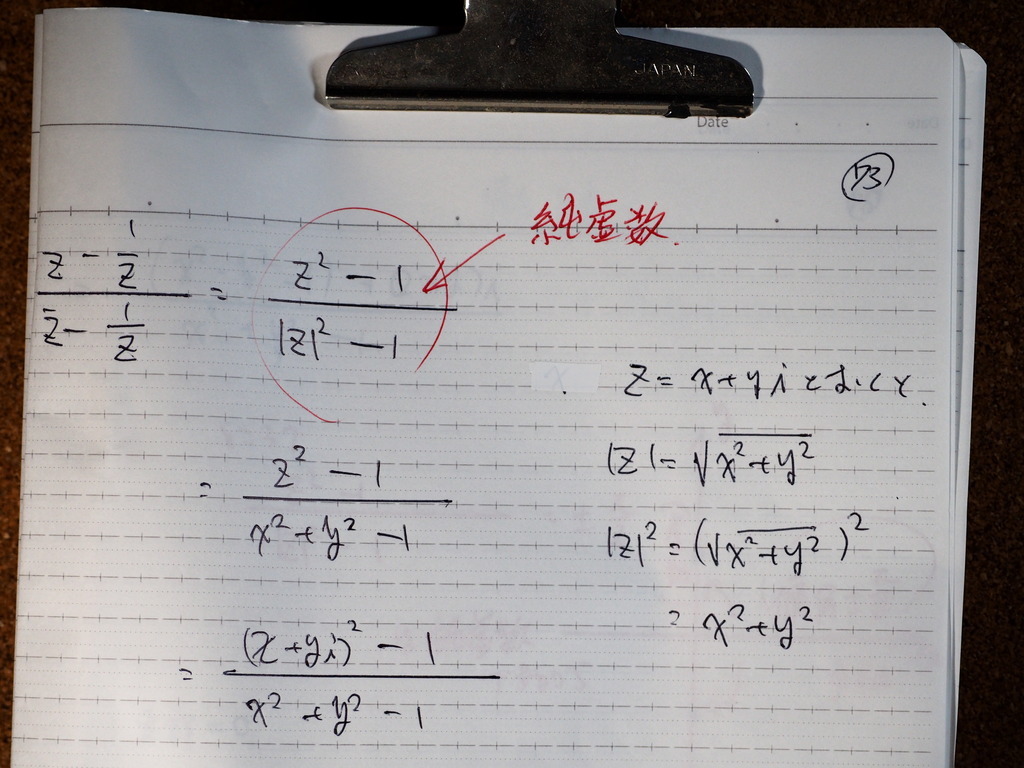 JAPAN
Date
73
純虚数.
(z - 1/z̄)/(z̄ - 1/z) = (z² - 1)/(|z|² - 1)
z = x + yi とおくと.
|z| = √(x² + y²)
= (z² - 1)/(x² + y² - 1)
|z|² = (√(x² + y²))²
= x² + y²
= ((x + yi)² - 1)/(x² + y² - 1)